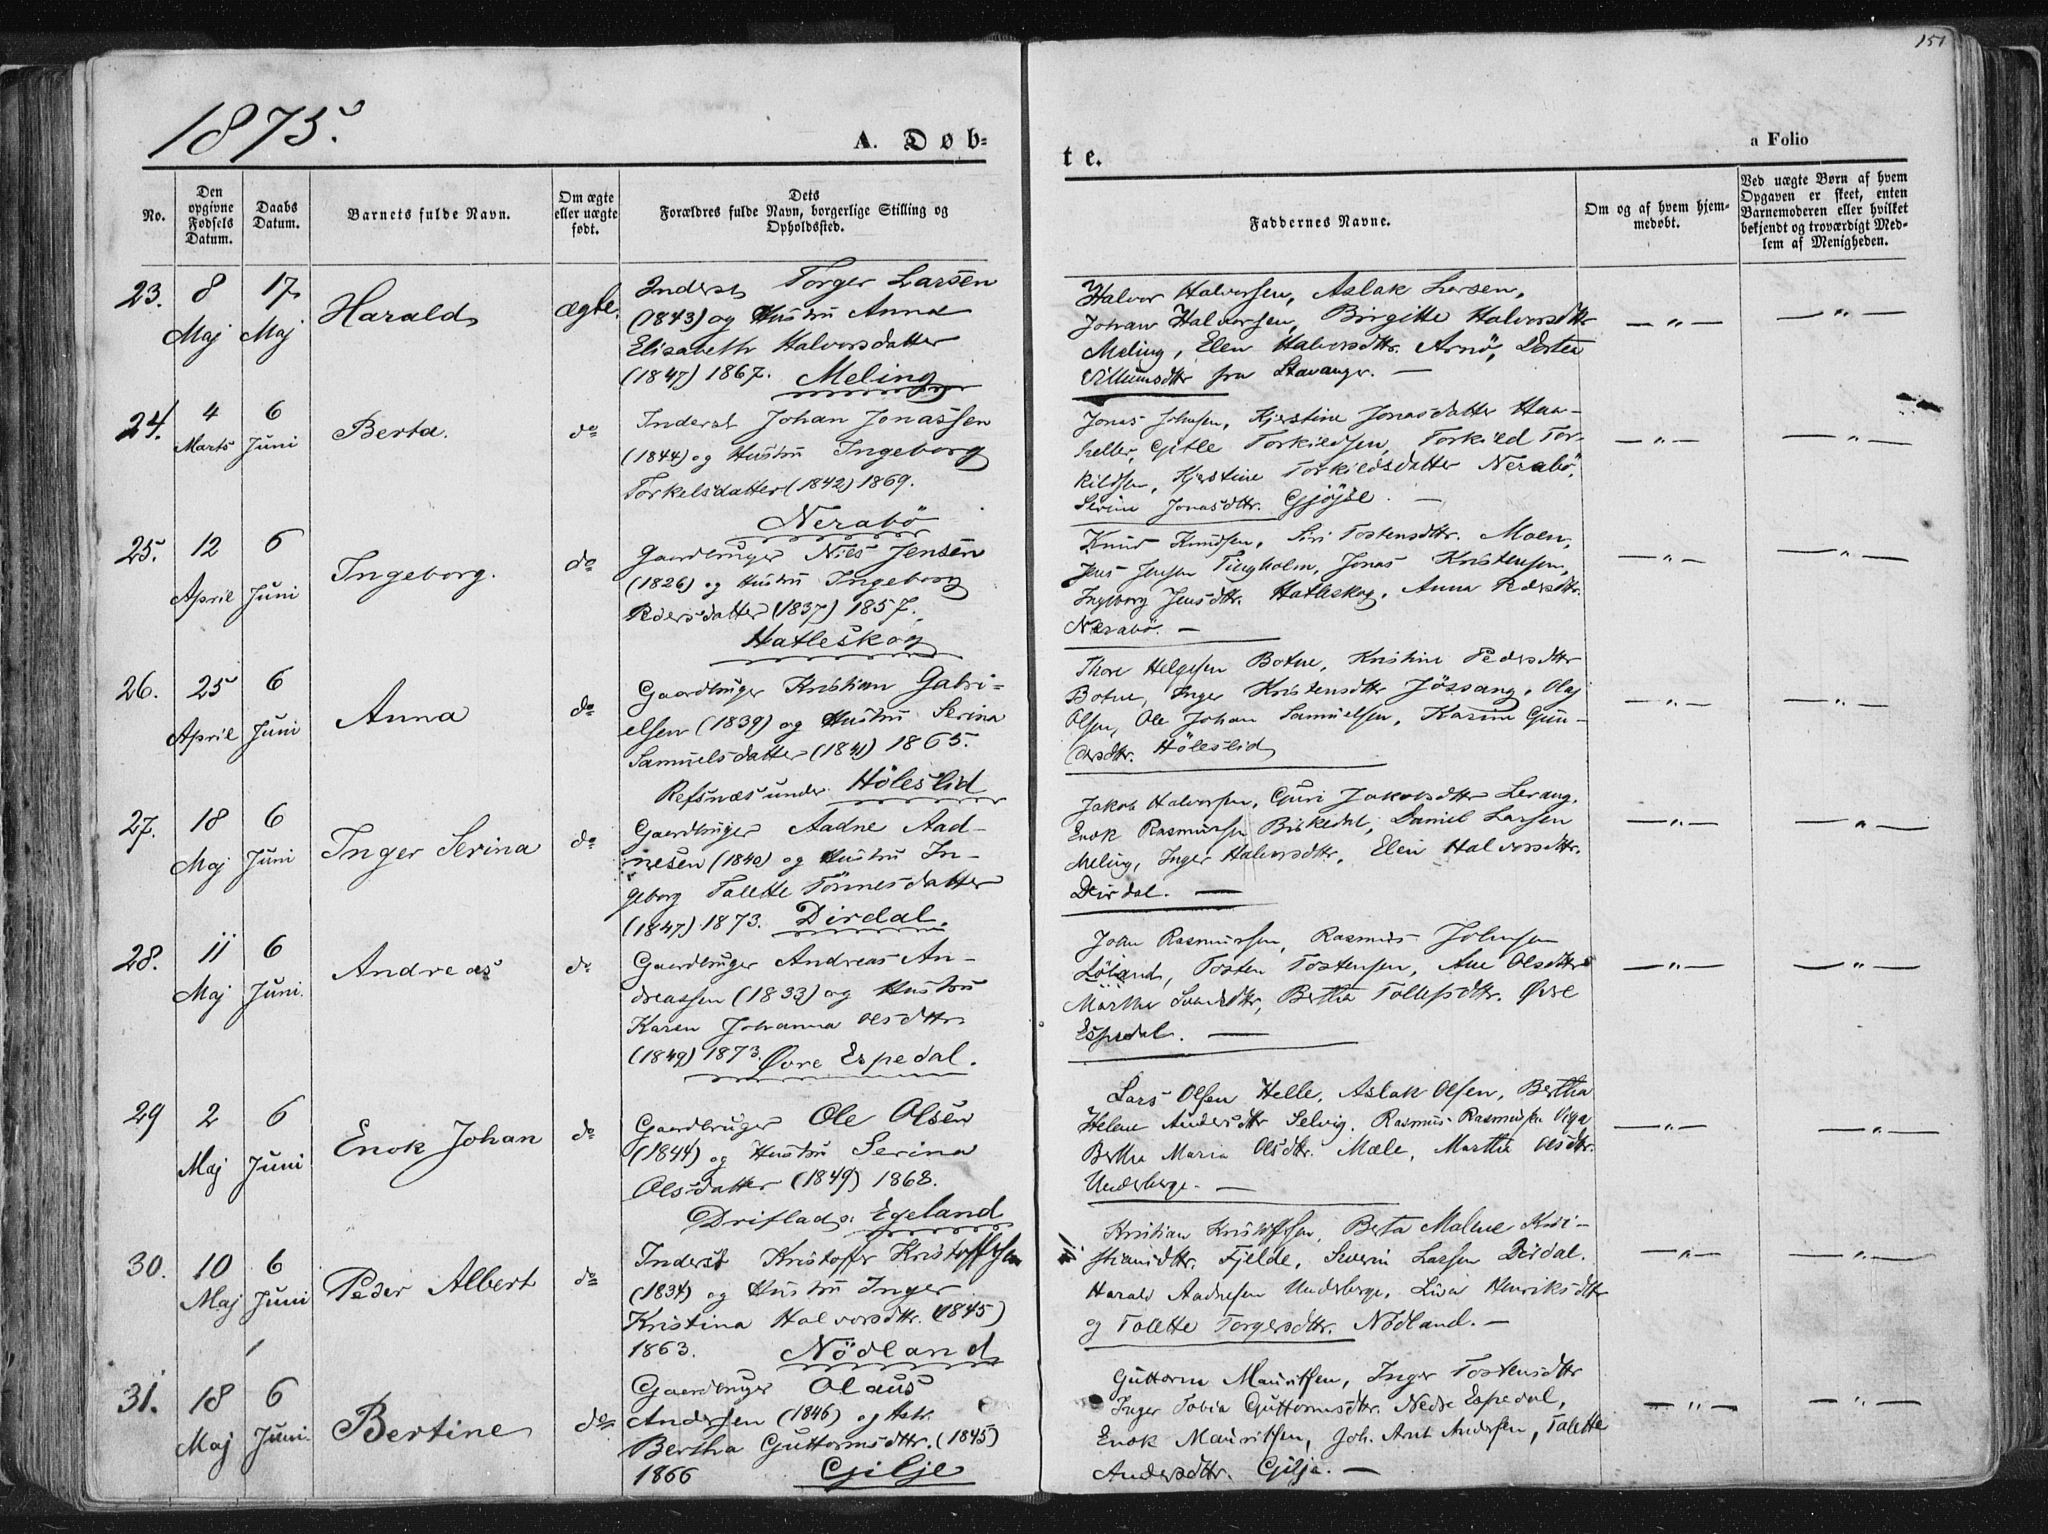 1875.
151
A. Døb-
te.
a Folio
No.
Den opgivne Fødsels Datum.
Daabs Datum.
Barnets fulde Navn.
Om ægte eller uægte født.
Dets Forældres fulde Navn, borgerlige Stilling og Opholdssted.
Faddernes Navne.
Om og af hvem hjemmedøbt.
Ved uægte Børn af hvem Opgaven er skeet, enten Barnemoderen eller hvilket bekjendt og troværdigt Medlem af Menigheden.
23. 8 Maj 17 Maj Harald ægte.
Inderst Torger Larsen
(1843) og Hustru Anna
Elisabeth Halvorsdatter
(1847) 1867. Meling
Halvor Halvorsen, Aslak Larsen,
Johan Halvorsen, Birgitte Halvorsdttr
Meling, Elen Halvorsdttr. Arnö, Dortea
Villumsdttr fra Stavanger. —
— " — — " —
24. 4 Marts 6 Juni Berta. do
Inderst Johan Jonassen
(1844) og Hustru Ingeborg
Torkelsdatter (1842) 1869.
Nerabö
Jonas Johnsen, Kjerstine Jonasdatter Haa-
heller, Gitle Torkildsen, Torkild Tor-
kildsen, Kjerstine Torkildsdatter Nerabö,
Serine Jonasdttr. Gjöjse. —
— " — — " —
25. 12 April 6 Juni Ingeborg. do
Gaardbruger Niels Jensen
(1826) og Hustru Ingeborg
Pedersdatter (1837) 1857.
Hatleskog
Knud Knudsen, Siri Tostensdttr. Moen,
Jens Jensen Tingholm, Jonas Kristensen,
Ingeborg Jensdttr. Hatleskog, Anna Pedersdttr.
Nerabö. —
— " — — " —
26. 25 April 6 Juni Anna do
Gaardbruger Kristian Gabri-
elsen (1839) og Hustru Serina
Samuelsdatter (1841) 1865.
Refsnæs under Höleslid
Thore Helgesen Botne, Kristine Pedersdttr
Botne, Inger Kristensdttr Jössang, Olaj
Olsen, Ole Johan Samuelsen, Karine Gun-
dersdttr. Höleslid
— " — — " —
27. 18 Maj 6 Juni Inger Serina do
Gaardbruger Aadne Aad-
nesen (1840) og Hustru In-
geborg Talette Tönnesdatter
(1847) 1873. Dirdal.
Jakob Halvorsen, Guri Jakobsdttr Lerang,
Enok Rasmussen Birkedal, Daniel Larsen
Meling, Inger Halvorsdttr, Elen Halvorsdttr.
Dirdal. —
— " — — " —
28. 11 Maj 6 Juni. Andreas do
Gaardbruger Andreas An-
dreassen (1833) og Hustru
Karen Johanna Olsdttr.
(1849) 1873. Øvre Espedal.
John Rasmussen, Rasmus Johnsen
Löland, Tosten Tostensen, Ane Olsdttr
Marthe Svendsdttr, Bertha Tollefsdttr. Øvre
Espedal. —
— " — — " —
29 2 Maj 6 Juni Enok Johan do
Gaardbruger Ole Olsen
(1844) og Hustru Serina
Olsdatter (1849) 1868.
Driflads. Egeland
Lars Olsen Helle, Aslak Olsen, Bertha
Helene Andersdttr Selvig. Rasmus Rasmussen Viga
Berthe Maria Olsdttr. Mæle, Marthe Olsdttr.
Underberge. —
— " — — " —
30. 10 Maj 6 Juni Peder Albert do
Inderst Kristoffer Kristoffersen
(1834) og Hustru Inger
Kristina Halvorsdttr. (1845)
1863. Nödland
Kristian Kristoffersen, Berta Malene Kri-
stiansdttr. Fjelde, Severin Larsen Dirdal.
Harald Aadnesen Underberge, Lisa Henriksdttr
og Talette Torgersdttr. Nödland. —
— " — — " —
31. 18 Maj 6 Juni. Bertine do
Gaardbruger Olaus
Andersen (1846) og Hstr.
Bertha Guttormsdttr. (1845)
1866 Gilje
Guttorm Mauritsen, Inger Tostensdttr
Inger Tobia Guttormsdttr. Nedre Espedal,
Enok Mauritsen, Joh. Arnt Andersen, Talette
Andersdttr. Gilje. —
— " — — " —